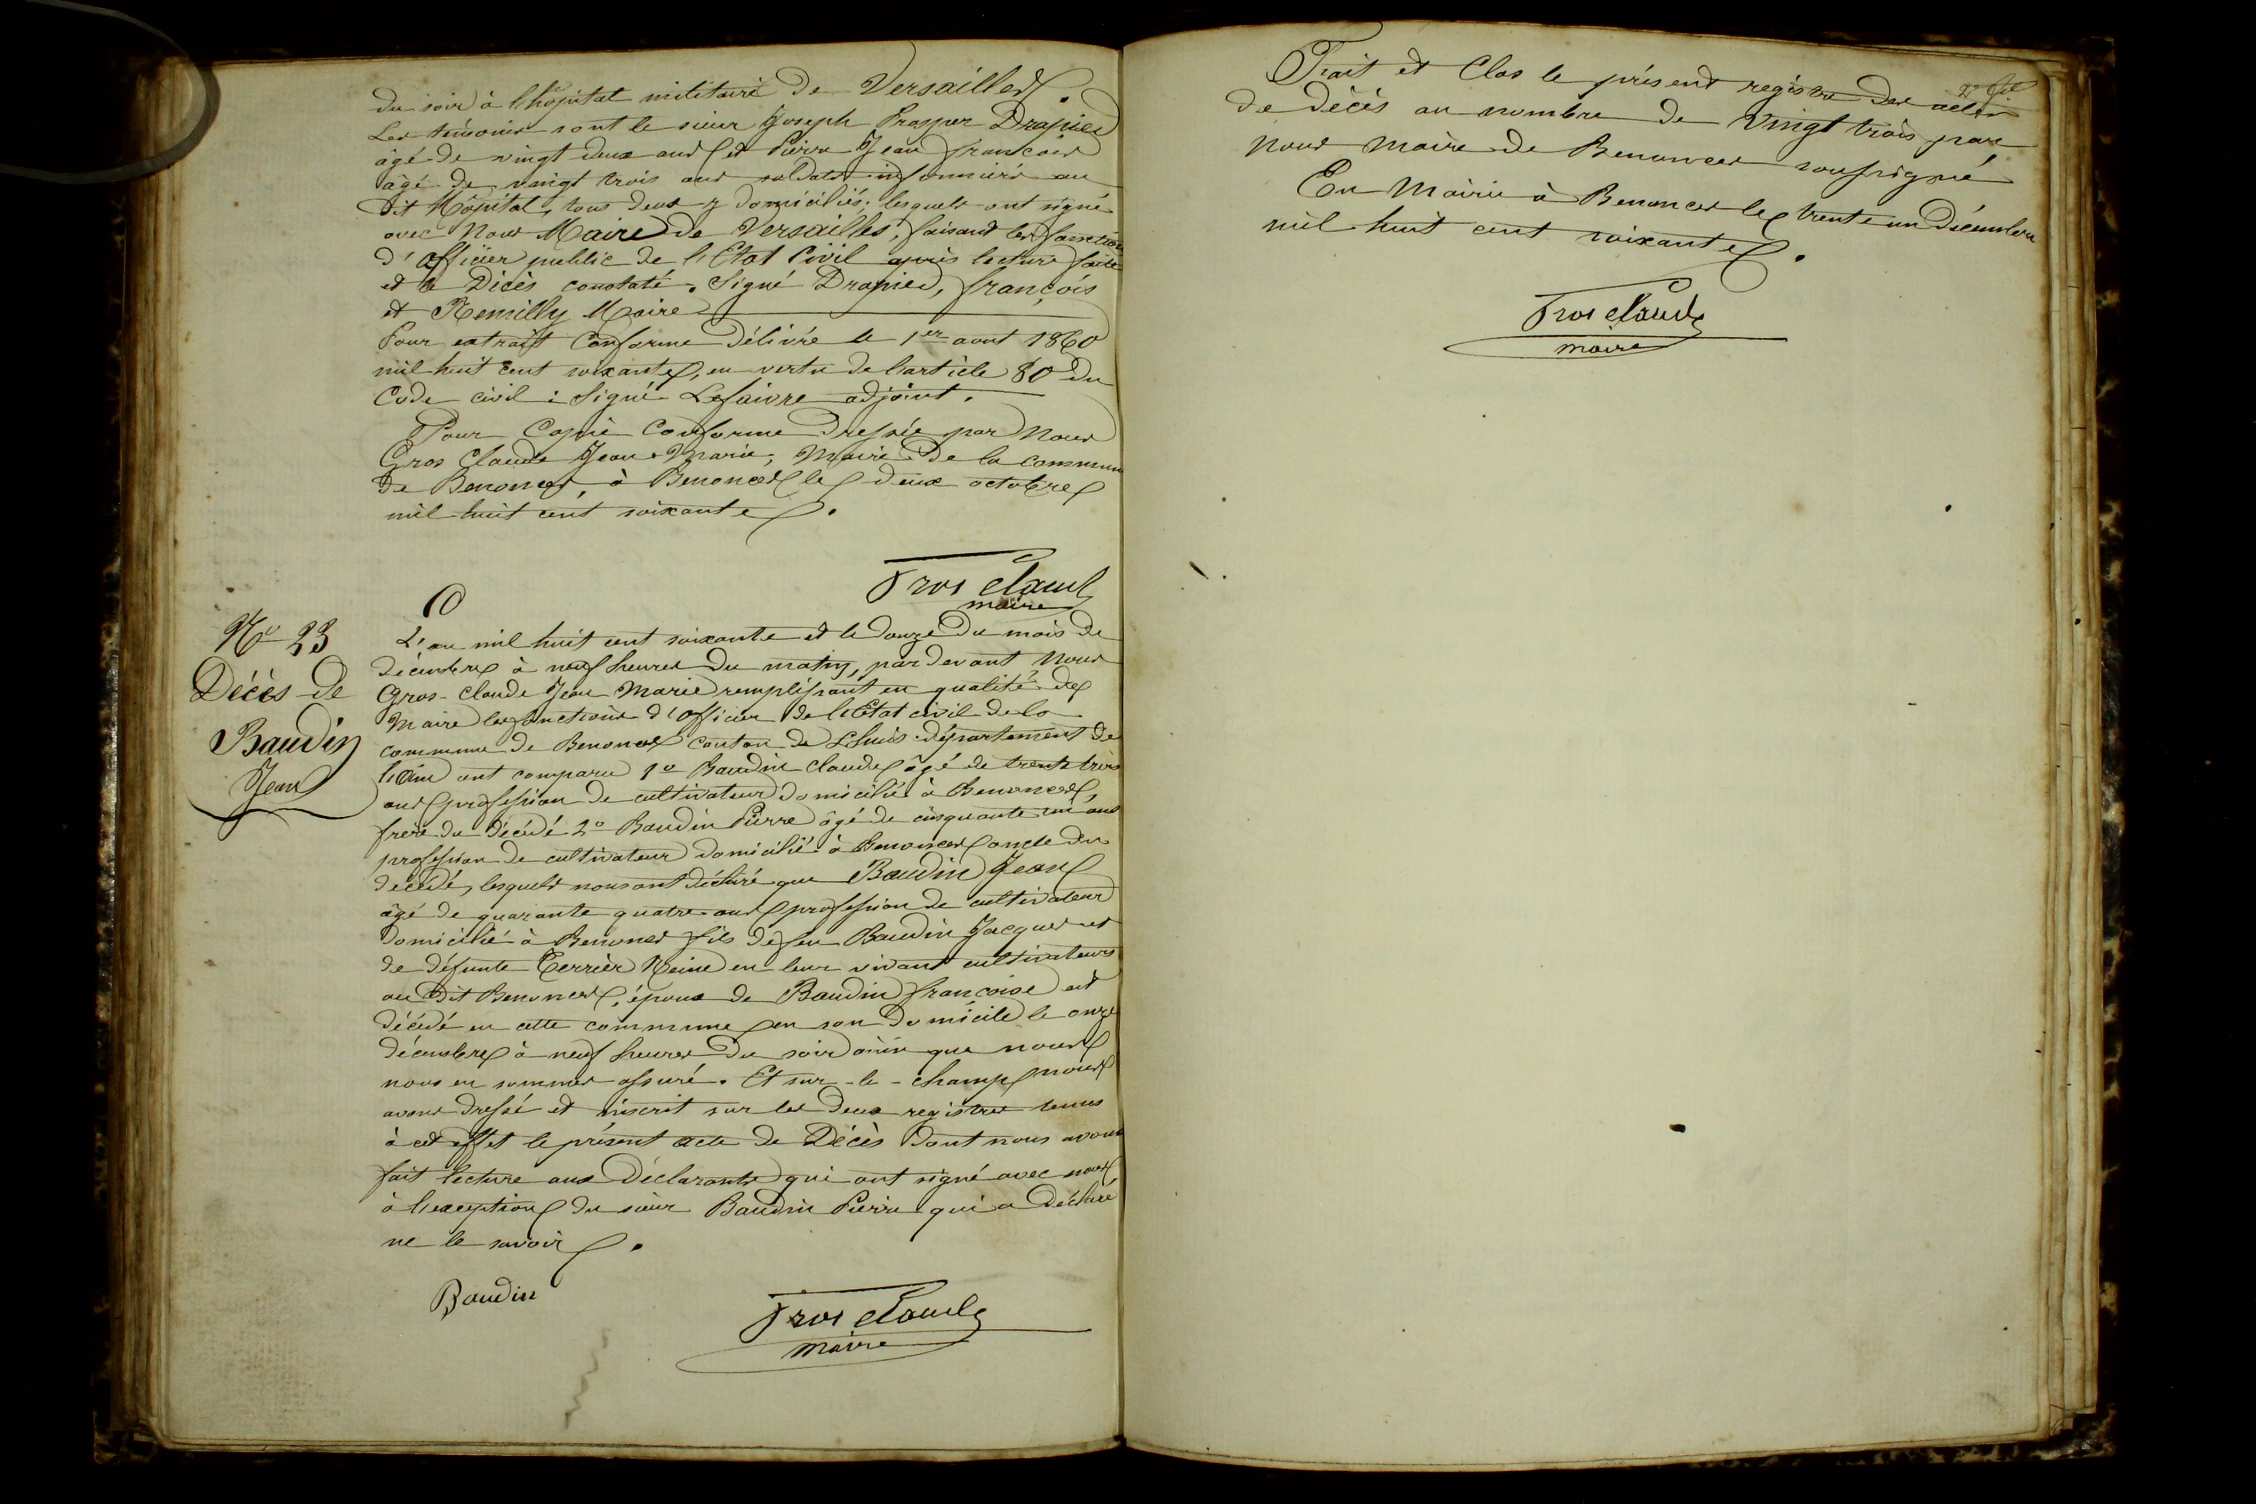 du soir à l'hôpital militaire de Versailles.
Les témoins sont le sieur Joseph Prosper Drapier
âgé de vingt deux ans et Pierre Jean François
âgé de vingt trois ans soldats infirmiers au
dit Hôpital, tous deux y domiciliés, lesquels ont signé
avec Nous Maire de Versailles, faisant les fonctions
d'officier public de l'Etat Civil après lecture faite
et le Décès constaté. Signé Drapier, François
et Remilly Maire
Pour extrait Conforme Délivré le 1er aout 1860
mil huit cent soixante, en vertu de l'article 80 du
Code civil : Signé Lefaivre adjoint.
Pour Copie Conforme Dressée par Nous
Gros Claude Jean-Marie, Maire De la commune
de Benonces, à Benonces le deux octobre
mil huit cent soixante.
Gros Claude
maire
No 23
Décès de
Baudin
Jean
L'an mil huit cent soixante et le douze du mois de
décembre à neuf heures du matin, par devant Nous
Gros-Claude Jean Marie remplissant en qualité de
Maire les fonctions d'officier de l'Etat civil de la
commune de Benonces canton de Lhuis département de
l'Ain ont comparu 1o Baudin Claude âgé de trente trois
ans profession de cultivateur domicilié à Benonces,
frère du décédé 2o Baudin Pierre âgé de cinquante un ans
profession de cultivateur domicilié à Benonces oncle du
décédé, lesquels nous ont déclaré que Baudin Jean
âgé de quarante quatre ans profession de cultivateur
domicilié à Benonces fils de feu Baudin Jacques et
de défunte Terrier Reine en leur vivant cultivateurs
au dit Benonces, époux de Baudin Françoise est
décédé en cette commune en son domicile le onze
décembre à neuf heures du soir ainsi que nous
nous en sommes assuré. Et sur-le-champ nous
avons dressé et inscrit sur les deux registres tenus
à cet effet le présent acte de Décès dont nous avons
fait lecture aux Déclarants qui ont signé avec nous
à l'exception du sieur Baudin Pierre qui a déclaré
ne le savoir.
Baudin
Gros Claude
maire
Fait et Clos le présent registre des actes
de décès au nombre de Vingt trois par
Nous Maire de Benonces soussigné
En Mairie à Benonces le trente un Décembre
mil huit cent soixante.
Gros Claude
maire